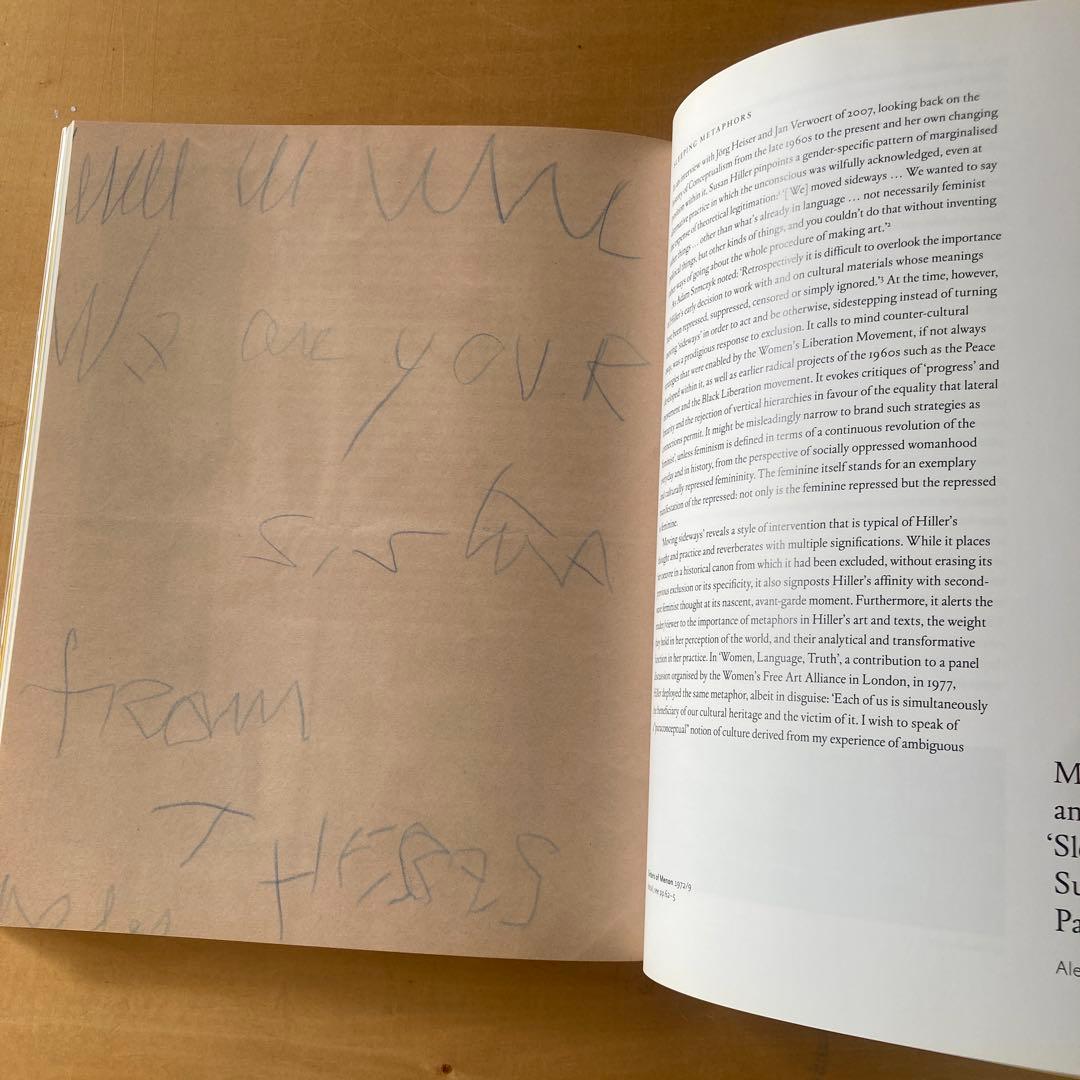 We are your
sister
from
THEBES
SLEEPING METAPHORS
interview with Jörg Heiser and Jan Verwoert of 2007, looking back on the
of Conceptualism from the late 1960s to the present and her own changing
within it, Susan Hiller pinpoints a gender-specific pattern of marginalised
practice in which the unconscious was wilfully acknowledged, even at
expense of theoretical legitimation: ‘[We] moved sideways … We wanted to say
things … other than what’s already in language … not necessarily feminist
political things, but other kinds of things, and you couldn’t do that without inventing
ways of going about the whole procedure of making art.’²
As Adam Szymczyk noted: ‘Retrospectively it is difficult to overlook the importance
of Hiller’s early decision to work with and on cultural materials whose meanings
have been repressed, suppressed, censored or simply ignored.’³ At the time, however,
moving ‘sideways’ in order to act and be otherwise, sidestepping instead of turning
was a prodigious response to exclusion. It calls to mind counter-cultural
strategies that were enabled by the Women’s Liberation Movement, if not always
developed within it, as well as earlier radical projects of the 1960s such as the Peace
movement and the Black Liberation movement. It evokes critiques of ‘progress’ and
and the rejection of vertical hierarchies in favour of the equality that lateral
connections permit. It might be misleadingly narrow to brand such strategies as
‘feminist’, unless feminism is defined in terms of a continuous revolution of the
everyday and in history, from the perspective of socially oppressed womanhood
and culturally repressed femininity. The feminine itself stands for an exemplary
manifestation of the repressed: not only is the feminine repressed but the repressed
feminine.
‘Moving sideways’ reveals a style of intervention that is typical of Hiller’s
thought and practice and reverberates with multiple significations. While it places
oeuvre in a historical canon from which it had been excluded, without erasing its
previous exclusion or its specificity, it also signposts Hiller’s affinity with second-
wave feminist thought at its nascent, avant-garde moment. Furthermore, it alerts the
reader/viewer to the importance of metaphors in Hiller’s art and texts, the weight
they hold in her perception of the world, and their analytical and transformative
function in her practice. In ‘Women, Language, Truth’, a contribution to a panel
discussion organised by the Women’s Free Art Alliance in London, in 1977,
Hiller deployed the same metaphor, albeit in disguise: ‘Each of us is simultaneously
the beneficiary of our cultural heritage and the victim of it. I wish to speak of
a “paraconceptual” notion of culture derived from my experience of ambiguous
Sisters of Menon 1972/9
detail, see pp.62–5
M
an
‘Sl
Su
Pa
Ale